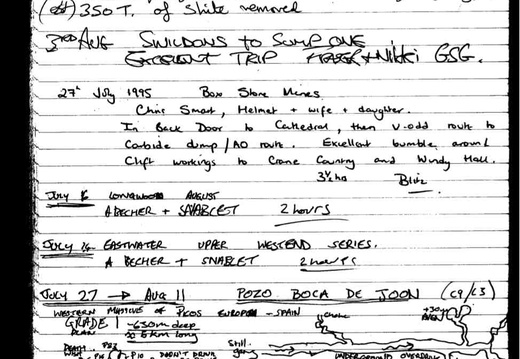 350 T. of Shite removed
3RD AUG SWILDONS TO SUMP ONE
EXCELLENT TRIP FRASER + Nikki GSG.
27th July 1995 Box Stone Mines
Chris Smart, Helmet + wife + daughter.
In Back Door to Cathedral, then V. odd route to
Carbide dump / AO route. Excellent bumble around
Clift workings to Crane Country and Windy Hall.
3½ hrs Blitz
JULY LONGWOOD AUGUST
A BECHER + SNABLET 2 hours
JULY 14 EASTWATER UPPER WESTEND SERIES.
A BECHER + SNABLET 2 hours
JULY 27 → Aug 11 POZO BOCA DE JOON (C9/C3)
WESTERN MASSIVE OF PICOS EUROPA - SPAIN
GRADE 1 -650m deep
PLAN 6 km long
Still going
DON'T DRINK
UNDERGROUND